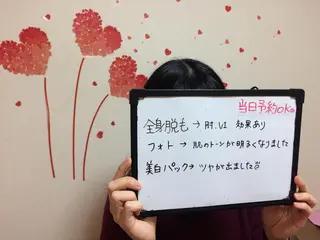 当日予約OK
全身脱毛 → 肘、VI 効果あり
フォト → 肌のトーンが明るくなりました
美白パック → ツヤが出ました